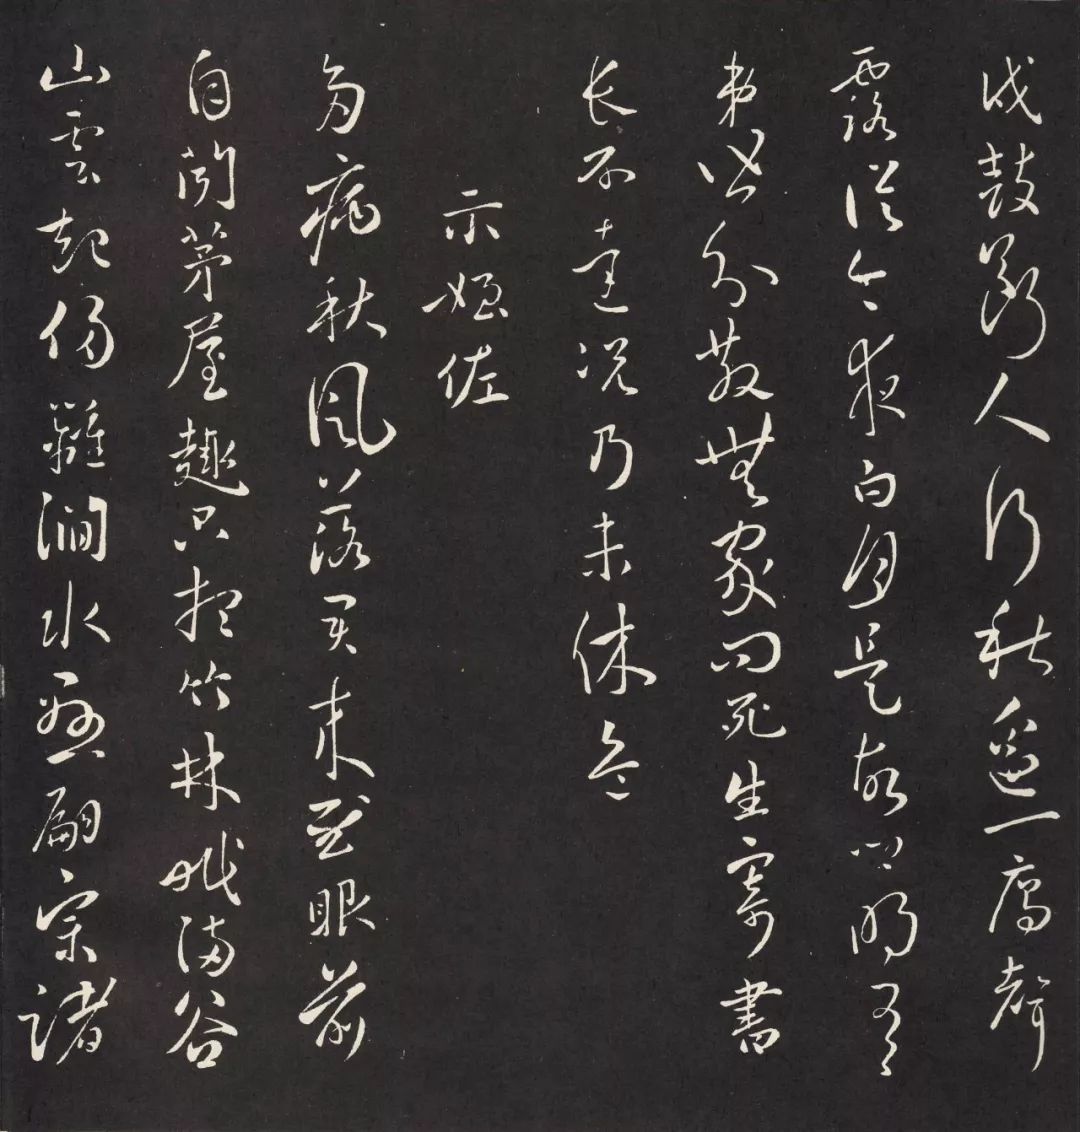 戍鼓斷人行秋邊一鴈聲
露從今夜白月是故鄉明有
弟皆分散無家問死生寄書
長不達況乃未休兵
示姪佐
多病秋風落君来慰眼前
自聞茅屋趣只想竹林眠滿谷
山雲起侵籬澗水懸嗣宗諸